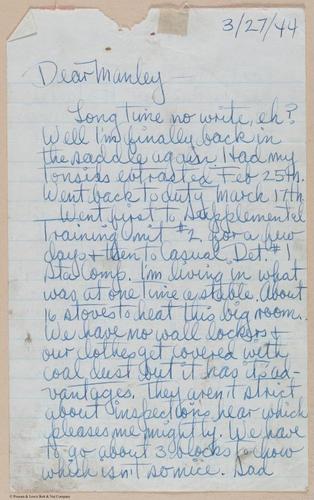 3/27/44
Dear Manley —
Long time no write, eh?
Well I'm finally back in
the saddle again. Had my
tonsils extracted Feb 25th.
Went back to duty March 17th.
Went first to Supplemental
Training Unit #2 for a few
days & then to Casual Det. #1
Sta Comp. I'm living in what
was at one time a stable. About
16 stoves to heat this big room.
We have no wall lockers &
our clothes get covered with
coal dust but it has its ad-
vantages. They aren't strict
about inspections hear which
pleases me mightly. We have
to go about 3 blocks to chow
which isn't so nice. Sad